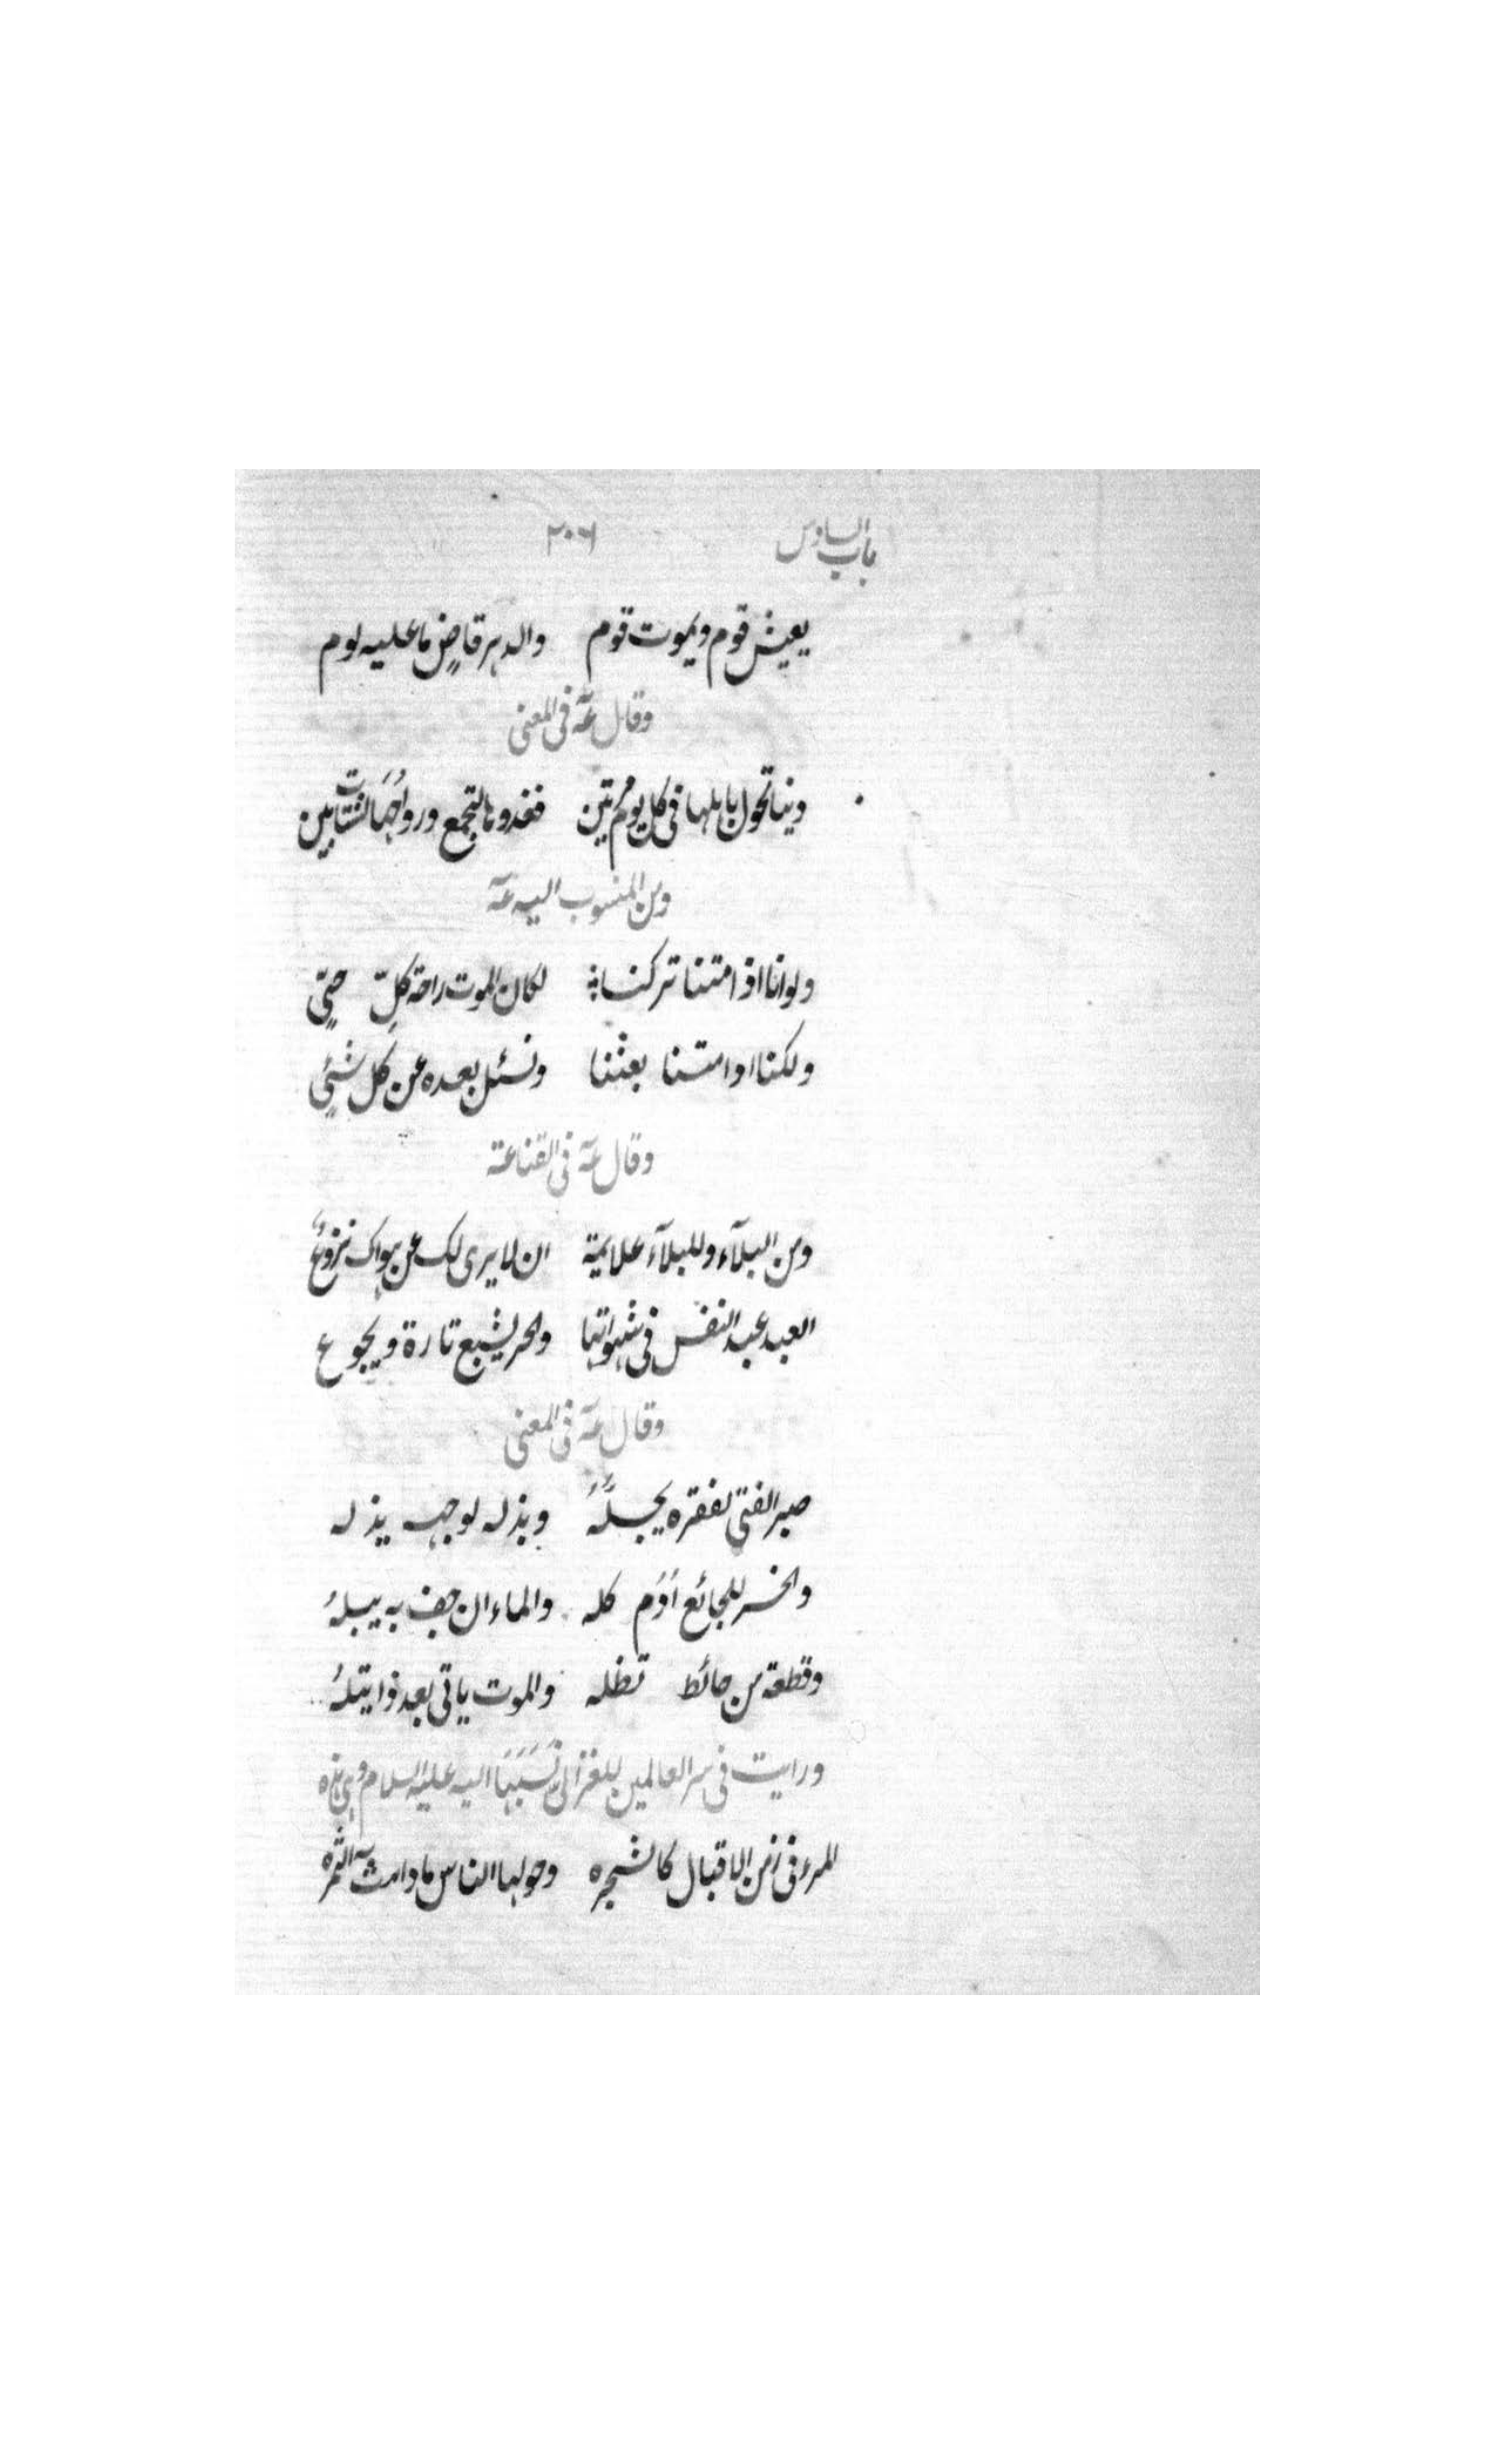 باب السادس ٢٠٦
يعيش قوم ويموت قوم والدهر قاضٍ ما عليه لوم
وقال عَۤه فى المعنى
دنيا تحول باهلها فى كل يوم مرتين فغدوها لتجمع ورواحُها لشتات بين
ومن المنسوب اليه عَۤه
ولو انا اذا متنا تركنا لكان الموت راحة كلِّ حىّ
ولكنا اذا متنا بعثنا ونسئل بعده عن كل شئي
وقال عَۤه فى القناعة
ومن البلآء وللبلآء علايمة ان لا يرى لك عن هواك نزوعُ
العبد عبد النفس فى شهواتها والحر يشبع تارة ويجوع
وقال عَۤه فى المعنى
صبر الفتى لفقره يجلُّهُ وبذله لوجهه يذله
والخبز للجائع ادُم كله والماء ان جف به يبلهُ
وقطعة من حائط تظله والموت ياتى بعد ذا يتلهُ
ورايت فى سر العالمين للغزالى نَسَبَهَا اليه عليه السلام وهى هذه
المرء فى زمن الاقبال كالشجره وحولها الناس ما دامت الثمره